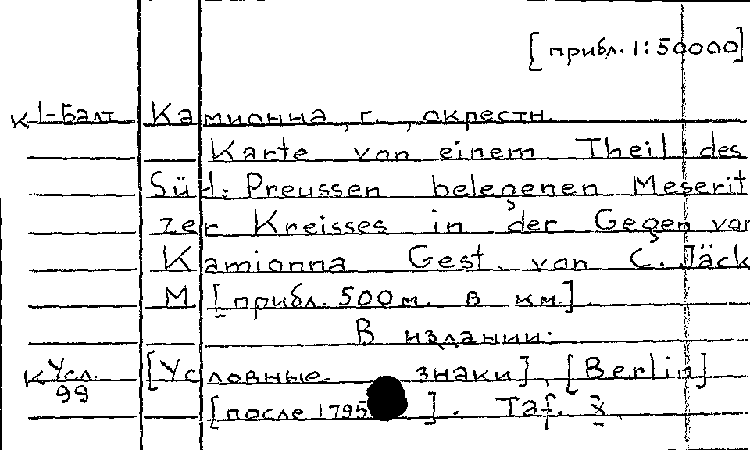 [прибл. 1:50000]
к 1-Балт Камионна, г., окрестн.
Karte von einem Theil des
Süd: Preussen belegenen Meserit
zer Kreisses in der Gegen von
Kamionna Gest. von C. Jäck
М [прибл. 500 м. в км.]
В издании:
к Усл. 99 [Условные знаки], [Berlin]
[после 1795]. Taf. 8